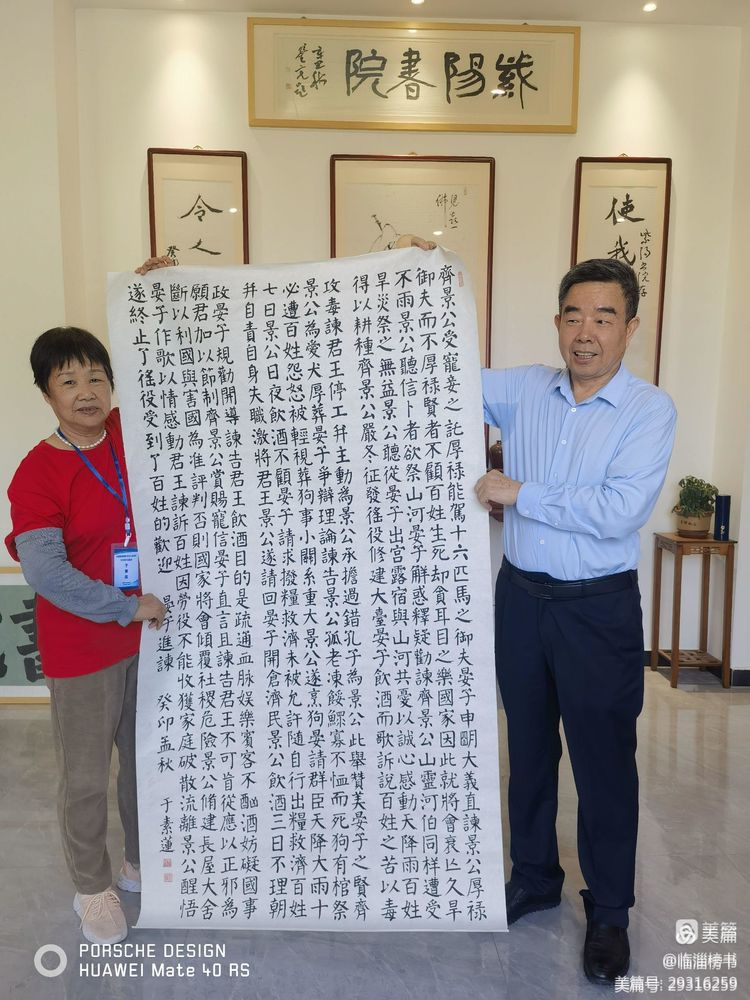 紫陽書院
令人
見喜
佛
使我
紫陽書院存
齊景公受寵妾之託厚禄能駕十六匹馬之御夫晏子申明大義直諫景公厚禄
御夫而不厚禄賢者不顧百姓生死却貪耳目之樂國家因此就將會衰亡久旱
不雨景公聽信卜者欲祭山河晏子解惑釋疑勸諫齊景公山靈河伯同樣遭受
旱災祭之無益景公聽從晏子出宫露宿與山河共憂以誠心感動天降雨百姓
得以耕種齊景公嚴冬征發徭役修建大臺晏子飲酒而歌訴説百姓之苦以毒
攻毒諫君王停工并主動為景公承擔過錯孔子為景公此舉贊美晏子之賢齊
景公為愛犬厚葬晏子爭辯理論諫告景公孤老凍餒鰥寡不恤而死狗有棺祭
必遭百姓怨怒被輕視葬狗事小關系重大景公遂烹狗晏請群臣天降大雨十
七日景公日夜飲酒不顧晏子請求撥糧救濟未被允許随自行出糧救濟百姓
并自責自身失職激將君王景公遂請回晏子開倉濟民景公飲酒三日不理朝
政晏子規勸開導諫告君王飲酒目的是疏通血脉娱樂賓客不酗酒妨礙國事
願君加以節制齊景公賞賜寵信晏子直言且諫告君王不可盲從應以正邪為
斷以利國與害國為准評判否則國家將會傾覆社稷危險景公脩建長屋大舍
晏子作歌以情感動君王諫訴百姓因勞役不能收獲家庭破散流離景公醒悟
遂終止了徭役受到了百姓的歡迎 晏子進諫 癸卯孟秋 于素蓮
PORSCHE DESIGN
HUAWEI Mate 40 RS
美篇
@临淄榜书
美篇号: 29316259